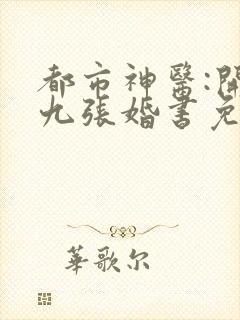 都市神醫:開
九張婚書免
華歌尔